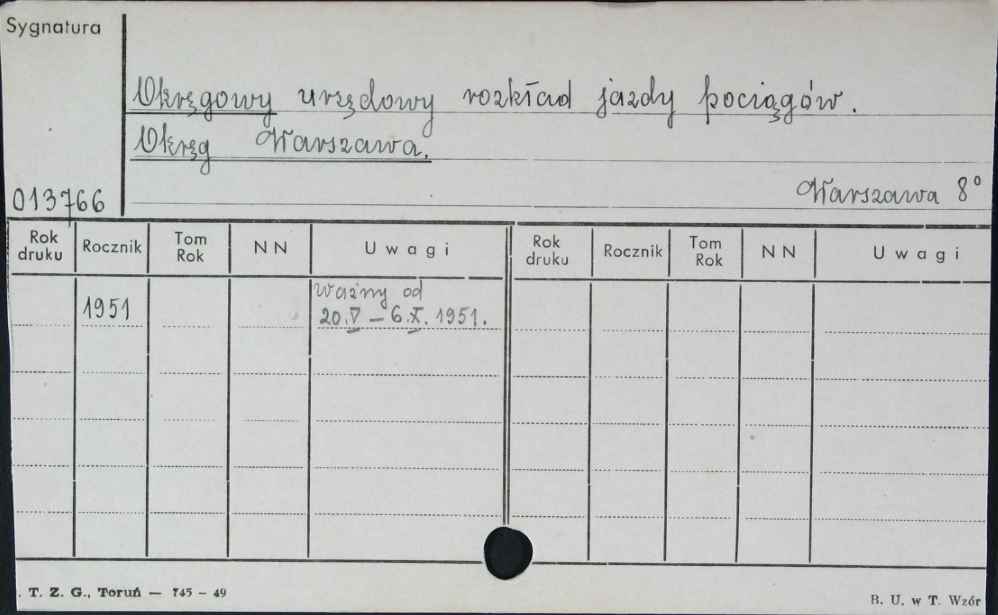 Sygnatura
Okręgowy urzędowy rozkład jazdy pociągów.
Okręg Warszawa.
013766
Warszawa 8°
Rok druku Rocznik Tom Rok N N Uwagi Rok druku Rocznik Tom Rok N N Uwagi
1951 Ważny od
20.V – 6.X. 1951.
T. Z. G., Toruń — 745 – 49
B. U. w T. Wzór